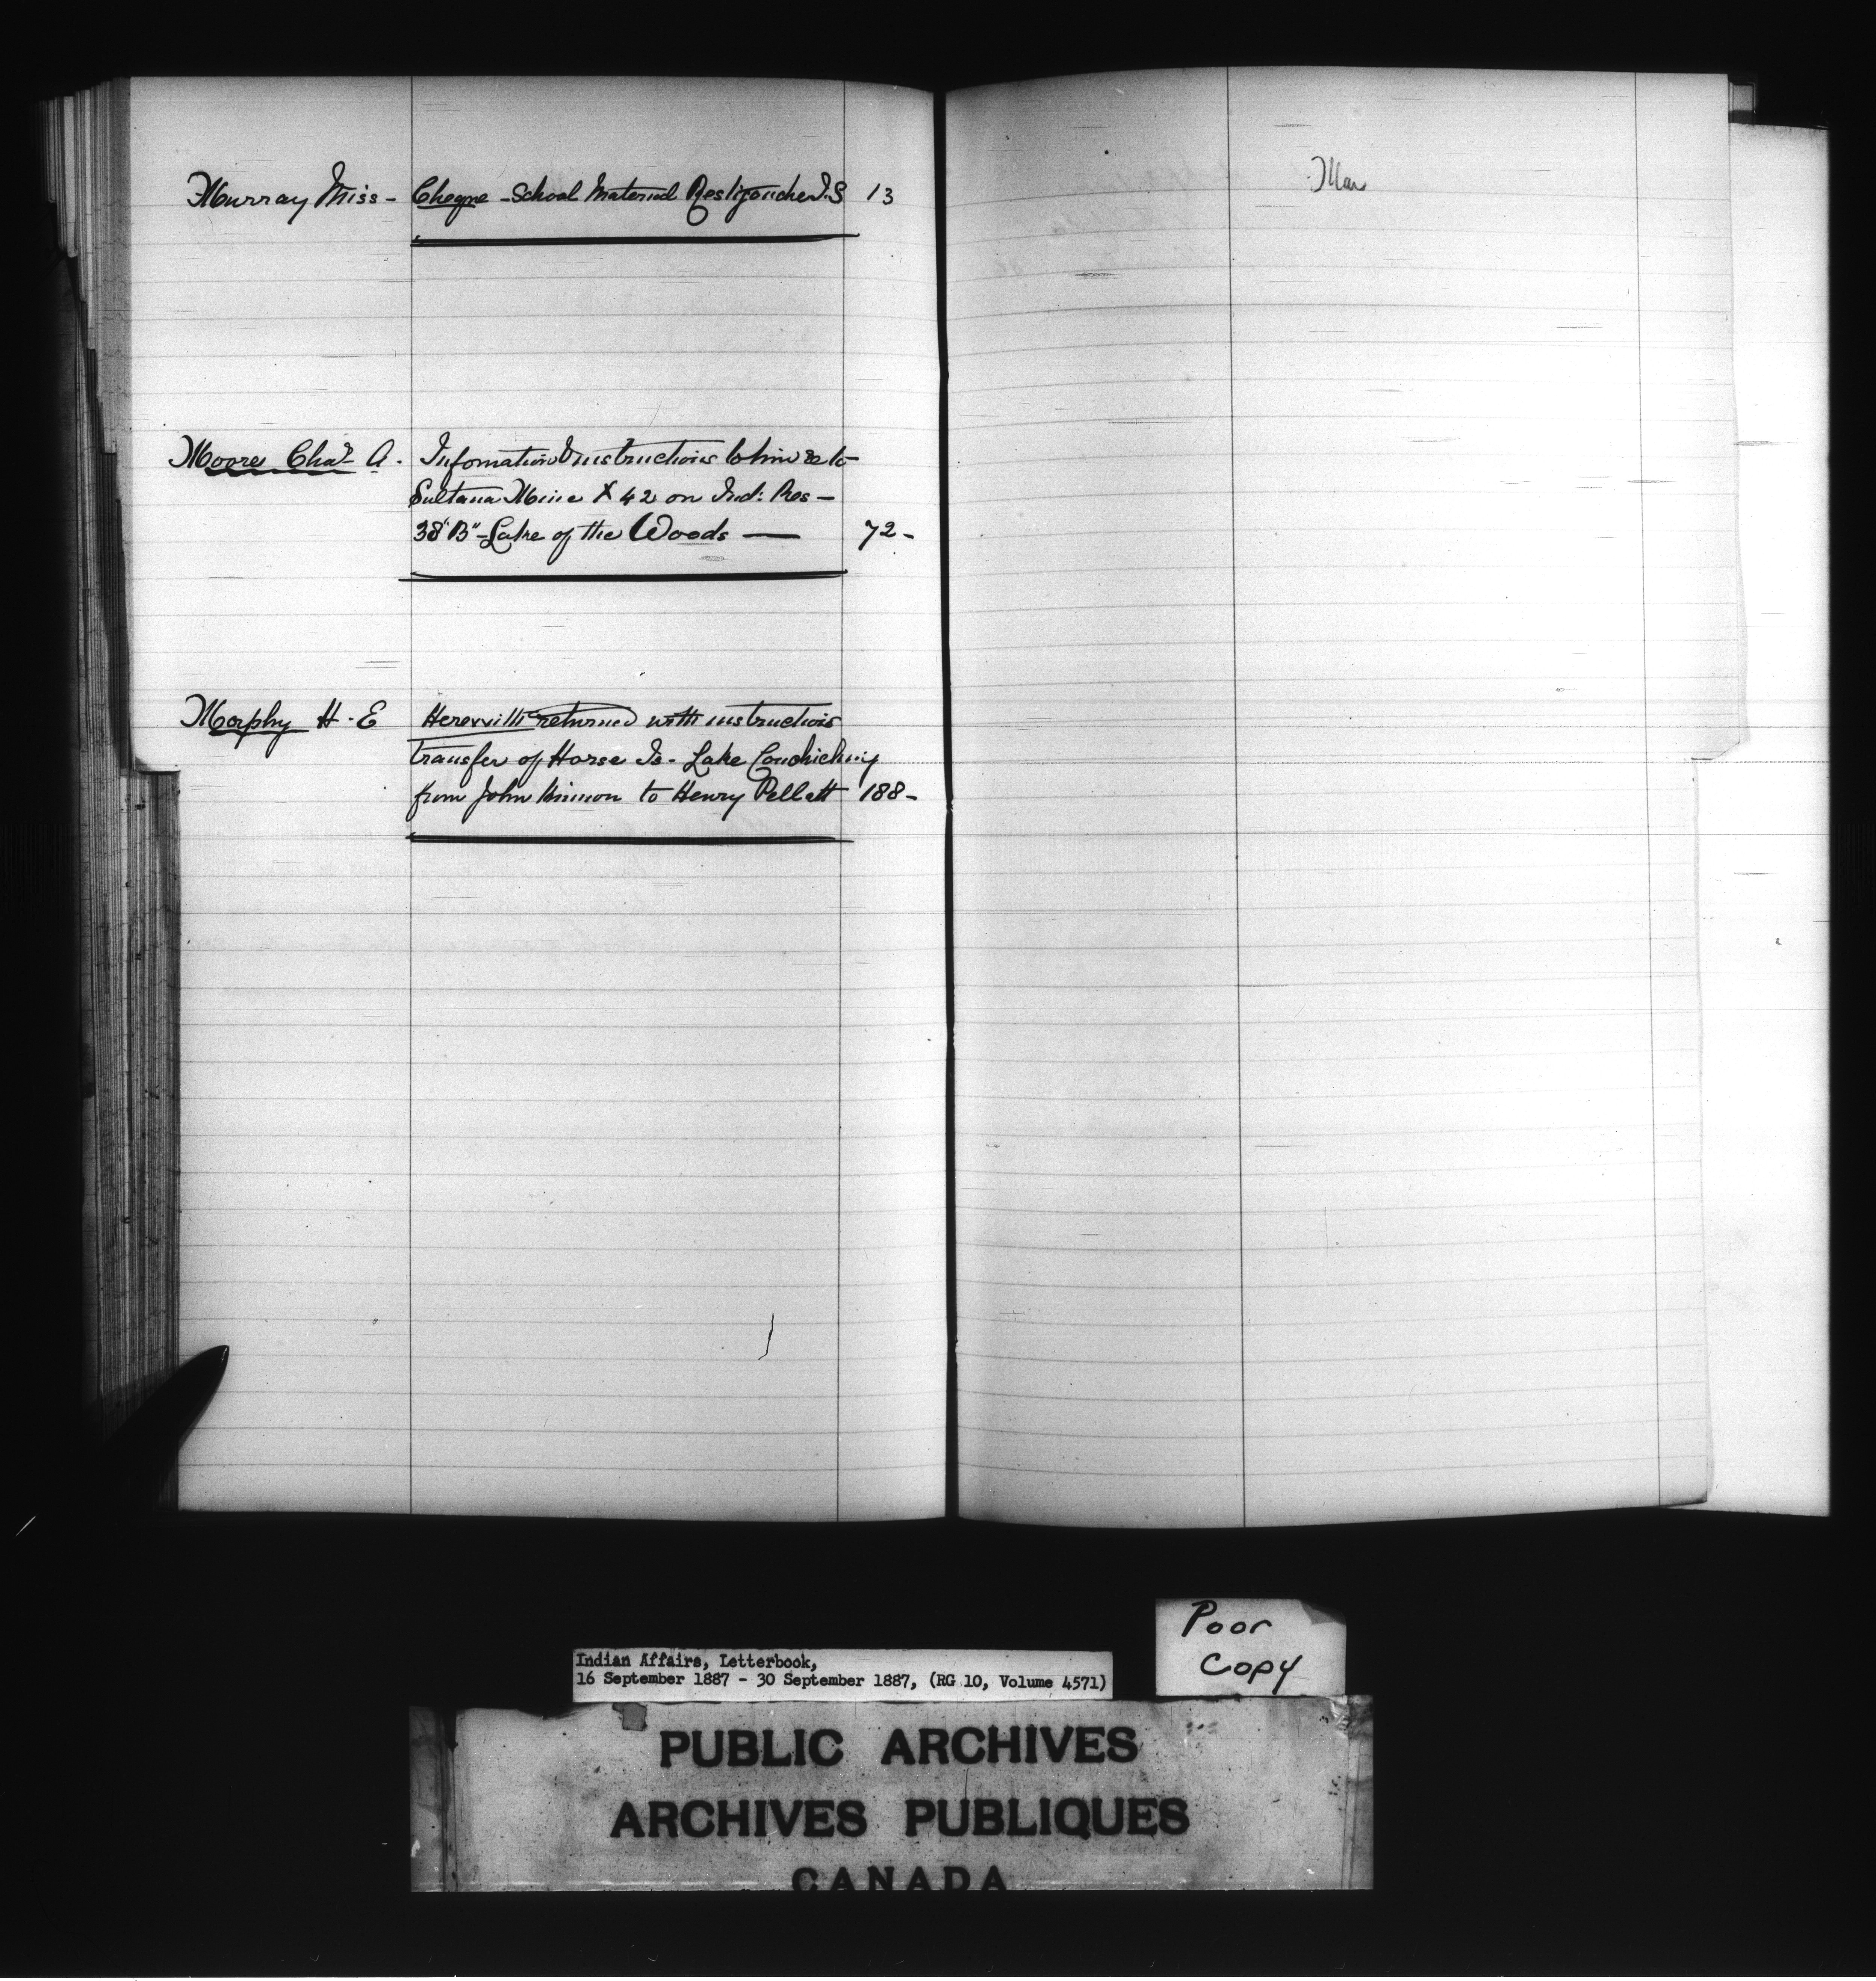 Murray Miss - Cheque - School Material Restigouche I.S 13
Moore Chas A. Information & instructions to him re to
Sultana Mine X 42 on Ind: Res -
38 "B" - Lake of the Woods — 72 -
Morphy H. E Herewith returned with instructions
transfer of Horse Is - Lake Couchiching
from John to Henry Pellatt 188 -
Mar
Poor
Copy
Indian Affairs, Letterbook,
16 September 1887 - 30 September 1887, (RG 10, Volume 4571)
PUBLIC ARCHIVES
ARCHIVES PUBLIQUES
CANADA